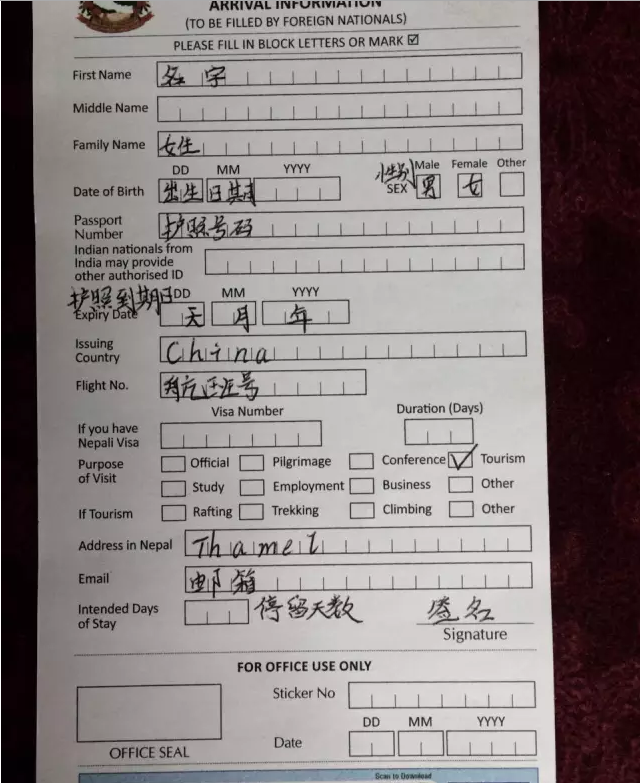 ARRIVAL INFORMATION
(TO BE FILLED BY FOREIGN NATIONALS)
PLEASE FILL IN BLOCK LETTERS OR MARK ☑
First Name 名字
Middle Name
Family Name 女生
DD MM YYYY 性别 Male Female Other
Date of Birth 出生日期 SEX 男 女
Passport
Number 护照号码
Indian nationals from
India may provide
other authorised ID
护照到期日 DD MM YYYY
Expiry Date 天 月 年
Issuing
Country China
Flight No. 号
Visa Number Duration (Days)
If you have
Nepali Visa
Purpose
of Visit
Official Pilgrimage Conference ✓ Tourism
Study Employment Business Other
If Tourism Rafting Trekking Climbing Other
Address in Nepal Thamel
Email 邮箱
Intended Days
of Stay 停留天数 名
Signature
FOR OFFICE USE ONLY
Sticker No
DD MM YYYY
OFFICE SEAL Date
Scan to Download